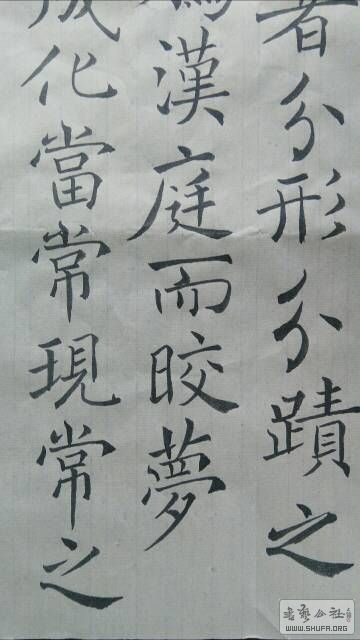 者分形分蹟之
漢庭而皎夢
化當常現常之
WWW.SHUFA.ORG